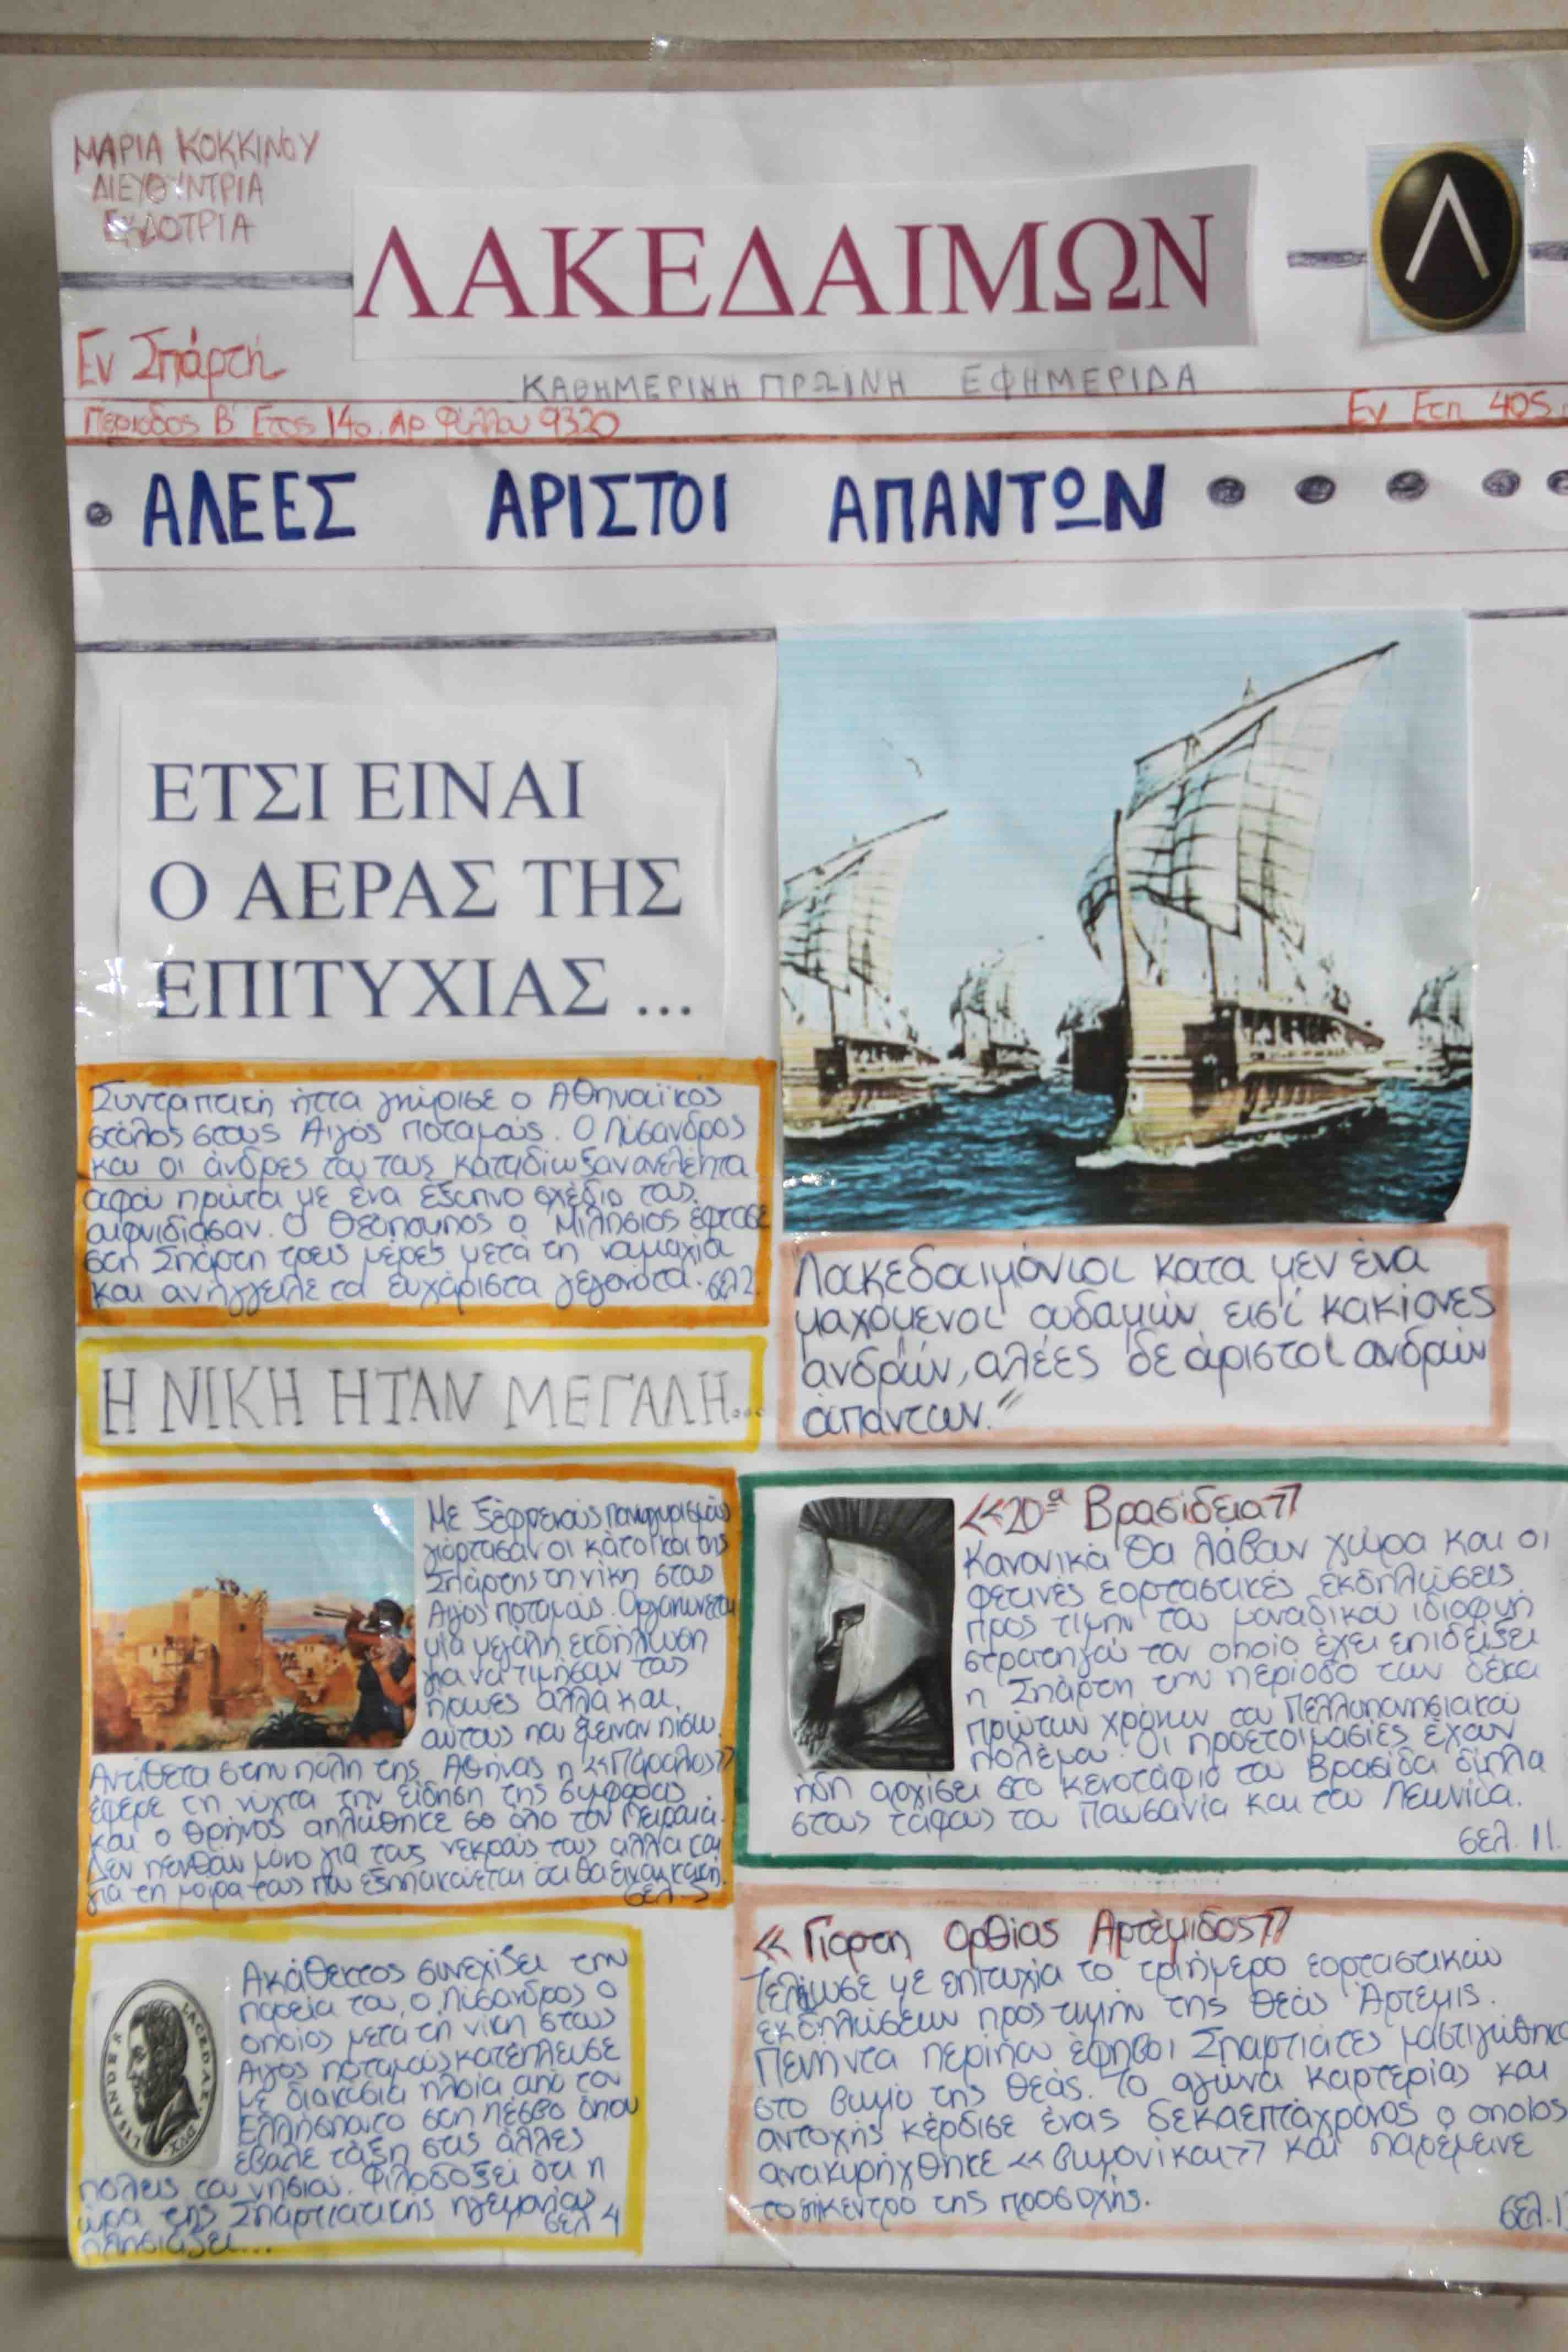 ΜΑΡΙΑ ΚΟΚΚΙΝΟΥ
ΔΙΕΥΘΥΝΤΡΙΑ
ΕΚΔΟΤΡΙΑ
ΛΑΚΕΔΑΙΜΩΝ
Λ
Εν Σπάρτη
ΚΑΘΗΜΕΡΙΝΗ ΠΡΩΙΝΗ ΕΦΗΜΕΡΙΔΑ
Περίοδος Β' Έτος 14ο. Αρ Φύλλου 9320
Εν Ετη 405
• ΑΛΕΕΣ ΑΡΙΣΤΟΙ ΑΠΑΝΤΩΝ • • • • •
ΕΤΣΙ ΕΙΝΑΙ
Ο ΑΕΡΑΣ ΤΗΣ
ΕΠΙΤΥΧΙΑΣ ...
Συντριπτική ήττα γνώρισε ο Αθηναϊκός
στόλος στους Αιγός ποταμούς. Ο Λύσανδρος
και οι άνδρες του τους καταδίωξαν ανελέητα
αφού πρώτα με ένα έξυπνο σχέδιο τους
αιφνιδίασαν. Ο Θεόπομπος ο Μιλήσιος έφτασε
στη Σπάρτη τρεις μέρες μετά τη ναυμαχία
και ανήγγειλε τα ευχάριστα γεγονότα. σελ 2
Λακεδαιμόνιοι κατα μεν ένα
μαχόμενοι ουδαμών εισί κακίονες
ανδρών, αλέες δε άριστοι ανδρών
απάντων."
Η ΝΙΚΗ ΗΤΑΝ ΜΕΓΑΛΗ...
Με ξέφρενους πανηγυρισμούς
γιόρτασαν οι κάτοικοι της
Σπάρτης τη νίκη στους
Αιγός ποταμούς. Οργανώνεται
μία μεγάλη εκδήλωση
για να τιμήσουν τους
ήρωες αλλά και
αυτούς που έμειναν πίσω.
Αντίθετα στην πόλη της Αθήνας η «Πάραλος»
έφερε τη νύχτα την είδηση της συμφοράς
και ο θρήνος απλώθηκε σο όλο τον Πειραιά.
Δεν πενθούν μόνο για τους νεκρούς τους αλλά και
για τη μοίρα τους που
σελ 5
«20α Βρασίδεια»
Κανονικά θα λάβουν χώρα και οι
φετινές εορταστικές εκδηλώσεις
προς τιμήν του μοναδικού ιδιοφυή
στρατηγού τον οποίο έχει επιδείξει
η Σπάρτη την περίοδο των δέκα
πρώτων χρόνων του Πελλοπονησιακού
πολέμου. Οι προετοιμασίες έχουν
ήδη αρχίσει στο κενοτάφιο του Βρασίδα δίπλα
στους τάφους του Παυσανία και του Λεωνίδα.
σελ. 11.
Ακάθεκτος συνεχίζει την
πορεία του, ο Λύσανδρος ο
οποίος μετά τη νίκη στους
Αιγός ποταμούς κατέπλευσε
με διακόσια πλοία από τον
Ελλήσποντο στη Λέσβο όπου
έβαλε τάξη στις άλλες
πόλεις του νησιού. Φιλοδοξεί ότι η
ώρα της Σπαρτιατικής ηγεμονίας
πλησιάζει...
σελ 4
LISANDER LACEDAE DUX
«Γιορτή Ορθίας Αρτέμιδος»
Τελείωσε με επιτυχία το τριήμερο εορταστικών
εκδηλώσεων προς τιμήν της Θεάς Άρτεμις.
Πενήντα περίπου έφηβοι Σπαρτιάτες μαστιγώθηκα
στο βωμό της θεάς. Το αγώνα καρτερίας και
αντοχής κέρδισε ένας δεκαεπτάχρονος ο οποίος
ανακυρήχθηκε «βωμονίκαι» και παρέμεινε
το επίκεντρο της προσοχής.
σελ.1